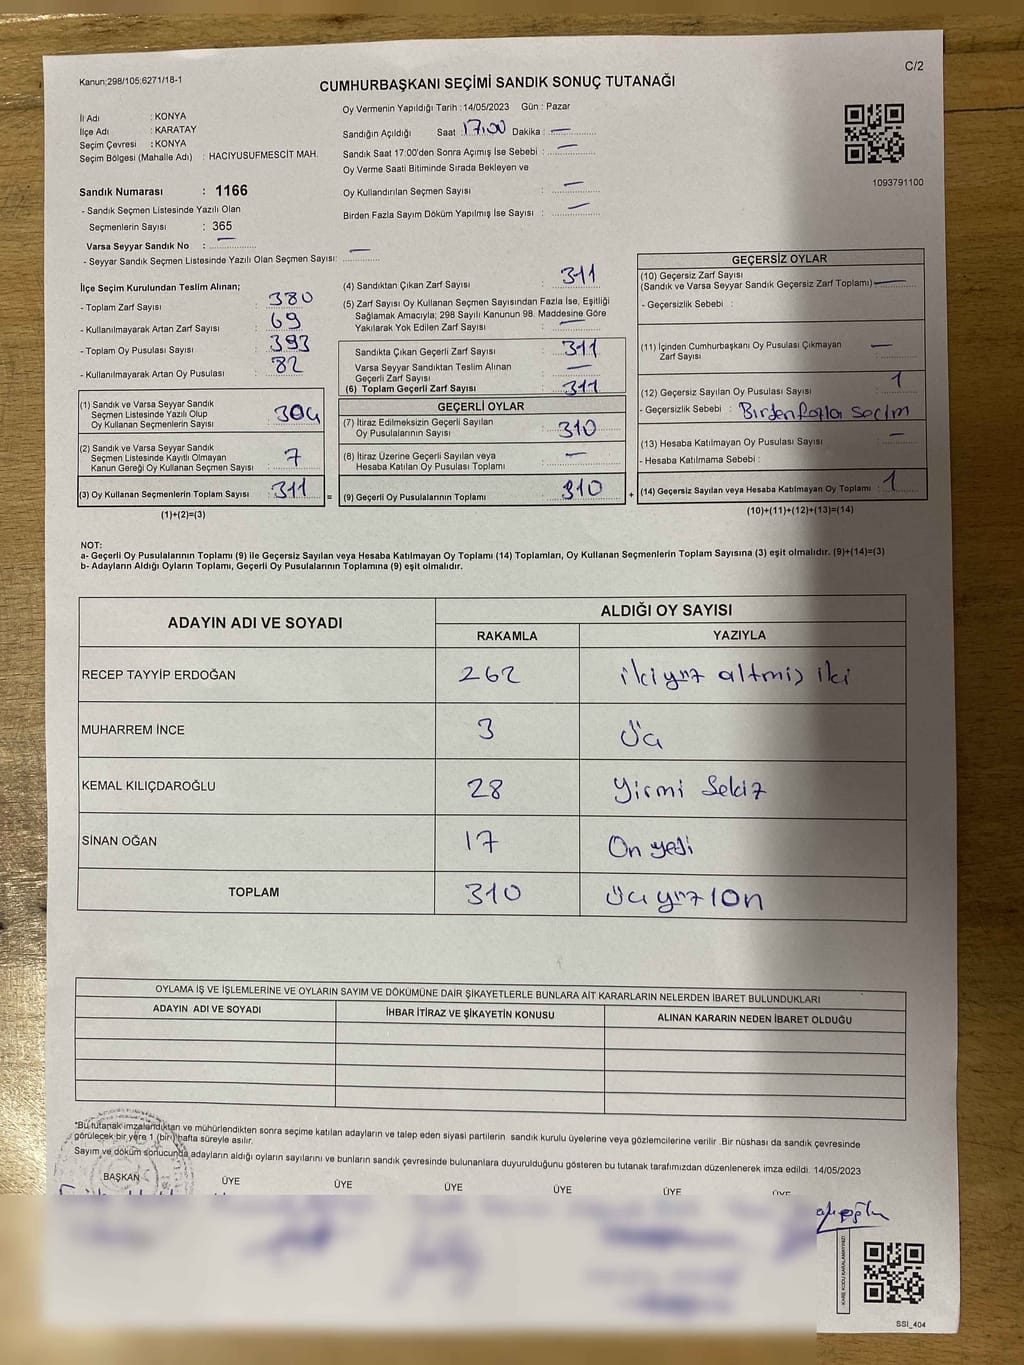 Kanun:298/105;6271/18-1
C/2
CUMHURBAŞKANI SEÇİMİ SANDIK SONUÇ TUTANAĞI
İl Adı : KONYA
İlçe Adı : KARATAY
Seçim Çevresi : KONYA
Seçim Bölgesi (Mahalle Adı) : HACIYUSUFMESCİT MAH.
Sandık Numarası : 1166
- Sandık Seçmen Listesinde Yazılı Olan
Seçmenlerin Sayısı : 365
Varsa Seyyar Sandık No : —
- Seyyar Sandık Seçmen Listesinde Yazılı Olan Seçmen Sayısı: —
Oy Vermenin Yapıldığı Tarih : 14/05/2023 Gün : Pazar
Sandığın Açıldığı Saat 17:00 Dakika : —
Sandık Saat 17:00'den Sonra Açımış İse Sebebi : —
Oy Verme Saati Bitiminde Sırada Bekleyen ve
Oy Kullandırılan Seçmen Sayısı : —
Birden Fazla Sayım Döküm Yapılmış İse Sayısı : —
1093791100
İlçe Seçim Kurulundan Teslim Alınan;
- Toplam Zarf Sayısı : 380
- Kullanılmayarak Artan Zarf Sayısı : 69
- Toplam Oy Pusulası Sayısı : 393
- Kullanılmayarak Artan Oy Pusulası : 82
(1) Sandık ve Varsa Seyyar Sandık
Seçmen Listesinde Yazılı Olup
Oy Kullanan Seçmenlerin Sayısı : 304
(2) Sandık ve Varsa Seyyar Sandık
Seçmen Listesinde Kayıtlı Olmayan
Kanun Gereği Oy Kullanan Seçmen Sayısı : 7
(3) Oy Kullanan Seçmenlerin Toplam Sayısı : 311
(1)+(2)=(3)
=
(4) Sandıktan Çıkan Zarf Sayısı : 311
(5) Zarf Sayısı Oy Kullanan Seçmen Sayısından Fazla İse, Eşitliği
Sağlamak Amacıyla; 298 Sayılı Kanunun 98. Maddesine Göre
Yakılarak Yok Edilen Zarf Sayısı : —
Sandıkta Çıkan Geçerli Zarf Sayısı : 311
Varsa Seyyar Sandıktan Teslim Alınan
Geçerli Zarf Sayısı : —
(6) Toplam Geçerli Zarf Sayısı : 311
GEÇERLİ OYLAR
(7) İtiraz Edilmeksizin Geçerli Sayılan
Oy Pusulalarının Sayısı : 310
(8) İtiraz Üzerine Geçerli Sayılan veya
Hesaba Katılan Oy Pusulası Toplamı : —
(9) Geçerli Oy Pusulalarının Toplamı : 310
+
GEÇERSİZ OYLAR
(10) Geçersiz Zarf Sayısı
(Sandık ve Varsa Seyyar Sandık Geçersiz Zarf Toplamı) —
- Geçersizlik Sebebi :
(11) İçinden Cumhurbaşkanı Oy Pusulası Çıkmayan
Zarf Sayısı : —
(12) Geçersiz Sayılan Oy Pusulası Sayısı : 1
- Geçersizlik Sebebi : Birden fazla secim
(13) Hesaba Katılmayan Oy Pusulası Sayısı : —
- Hesaba Katılmama Sebebi :
(14) Geçersiz Sayılan veya Hesaba Katılmayan Oy Toplamı : 1
(10)+(11)+(12)+(13)=(14)
NOT:
a- Geçerli Oy Pusulalarının Toplamı (9) ile Geçersiz Sayılan veya Hesaba Katılmayan Oy Toplamı (14) Toplamları, Oy Kullanan Seçmenlerin Toplam Sayısına (3) eşit olmalıdır. (9)+(14)=(3)
b- Adayların Aldığı Oyların Toplamı, Geçerli Oy Pusulalarının Toplamına (9) eşit olmalıdır.
ADAYIN ADI VE SOYADI
ALDIĞI OY SAYISI
RAKAMLA YAZIYLA
RECEP TAYYİP ERDOĞAN 262 ikiyüz altmış iki
MUHARREM İNCE 3 Üç
KEMAL KILIÇDAROĞLU 28 Yirmi Sekiz
SİNAN OĞAN 17 On yedi
TOPLAM 310 Üçyüz10n
OYLAMA İŞ VE İŞLEMLERİNE VE OYLARIN SAYIM VE DÖKÜMÜNE DAİR ŞİKAYETLERLE BUNLARA AİT KARARLARIN NELERDEN İBARET BULUNDUKLARI
ADAYIN ADI VE SOYADI İHBAR İTİRAZ VE ŞİKAYETİN KONUSU ALINAN KARARIN NEDEN İBARET OLDUĞU
*Bu tutanak imzalandıktan ve mühürlendikten sonra seçime katılan adayların ve talep eden siyasi partilerin sandık kurulu üyelerine veya gözlemcilerine verilir .Bir nüshası da sandık çevresinde
görülecek bir yere 1 (bir) hafta süreyle asılır.
Sayım ve döküm sonucunda adayların aldığı oyların sayılarını ve bunların sandık çevresinde bulunanlara duyurulduğunu gösteren bu tutanak tarafımızdan düzenlenerek imza edildi. 14/05/2023
BAŞKAN ÜYE ÜYE ÜYE ÜYE ÜYE ÜYE
KARE KODU KARALAMAYINIZ!
SSI_404